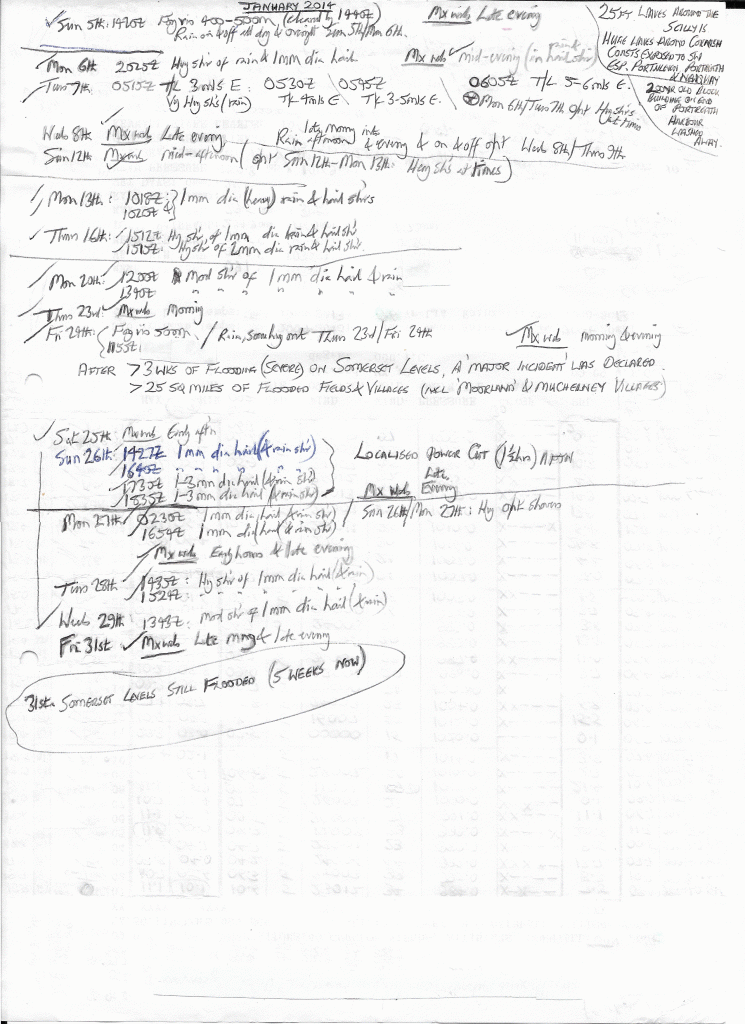 JANUARY 2014
Sun 5th: 1420Z Fog vis 400-500m, (cleared by 1440Z) Mx wnds Late evening
Rain on & off all day & overnight Sun 5th/Mon 6th.
25ft WAVES AROUND THE
SCILLY IS
HUGE WAVES AROUND CORNISH
COASTS EXPOSED TO SW
ESP. PORTHLEVEN, PORTREATH
& NEWQUAY
OLD BLOCK
BUILDING ON END
OF PORTREATH
HARBOUR
WASHED
AWAY.
Mon 6th 2025Z Hvy shr of rain & 1mm dia hail. Mx wnds mid-evening (in hail shr)
Tues 7th 0515Z T/L 3 mls E 0530Z 0545Z 0605Z T/L 5-6 mls E.
V Hvy shrs (rain) T/L 4 mls E T/L 3-5 mls E. Mon 6th/Tues 7th opt Hvy shrs at times
Wed 8th Mx wnds Late evening Rain late morng into afternoon & evening & on & off o/nt Wed 8th/Thurs 9th
Sun 12th Mx wnds mid-afternoon (o/nt Sun 12th-Mon 13th: Heavy shrs at times)
Mon 13th: 1018Z: } 1mm dia (heavy) rain & hail shrs
1020Z
Thurs 16th: 1512Z Hy shr of 1mm dia rain & hail shr
1515Z: Hy shr of 2mm dia rain & hail shr.
Mon 20th: 1200Z Mod shr of 1mm dia hail & rain
1340Z " " " " "
Thurs 23rd Mx wnds Morning
Fri 24th: { Fog vis 500m / Rain, some hvy o/nt Thurs 23rd/Fri 24th Mx wnds morning & evening
1155Z
AFTER >3 WKS OF FLOODING (SEVERE) ON SOMERSET LEVELS, A 'MAJOR INCIDENT' WAS DECLARED
>25 SQ MILES OF FLOODED FIELDS & VILLAGES (INCL 'MOORLAND' & MUCHERNEY VILLAGES)
Sat 25th: Mx wnds Early aftn
Sun 26th: 1427Z 1mm dia hail (& rain shr) LOCALISED POWER CUT (1½hrs) AFTN
1640Z " " " " "
1730Z 1-3mm dia hail (& rain shr) Late
1835Z 1-3mm dia hail (& rain shr) Mx wnds Evening
Mon 27th 0230Z 1mm dia hail (& rain shr) / Sun 26th/Mon 27th: Hvy o/nt showers
1654Z 1mm dia (hail & rain shr)
Mx wnds Early hours & late evening
Tues 28th 1435Z: Hy shr of 1mm dia hail (& rain)
1524Z: " " " " "
Wed 29th 1348Z: mod shr of 1mm dia hail (& rain)
Fri 31st Mx wnds Late mrng & late evening
31st: SOMERSET LEVELS STILL FLOODED (5 WEEKS NOW)